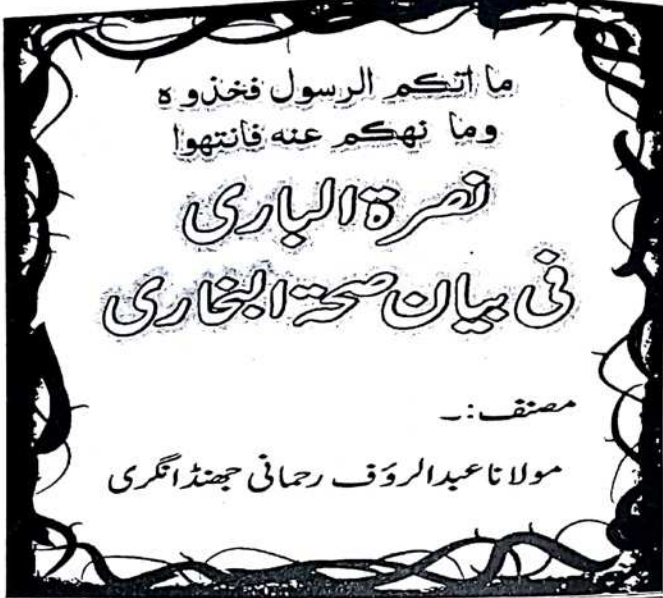 ما اتکم الرسول فخذوه
وما نھکم عنه فانتھوا
نصرة الباری
فی بیان صحة البخاری
مصنف:۔
مولانا عبدالرؤف رحمانی جھنڈانگری